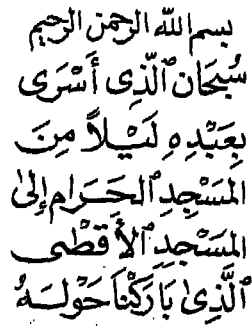 بسم الله الرحمن الرحيم
سُبْحَان ٱلَّذِى أَسْرَى
بِعَبْدِهِ لَيْلًا مِنَ
المَسْجِدِ ٱلحَرَامِ إِلىٰ
المَسْجِدِ ٱلأَقْصٰى
ٱلَّذِىٰ بَارَكْنَا حَوْلَهُ